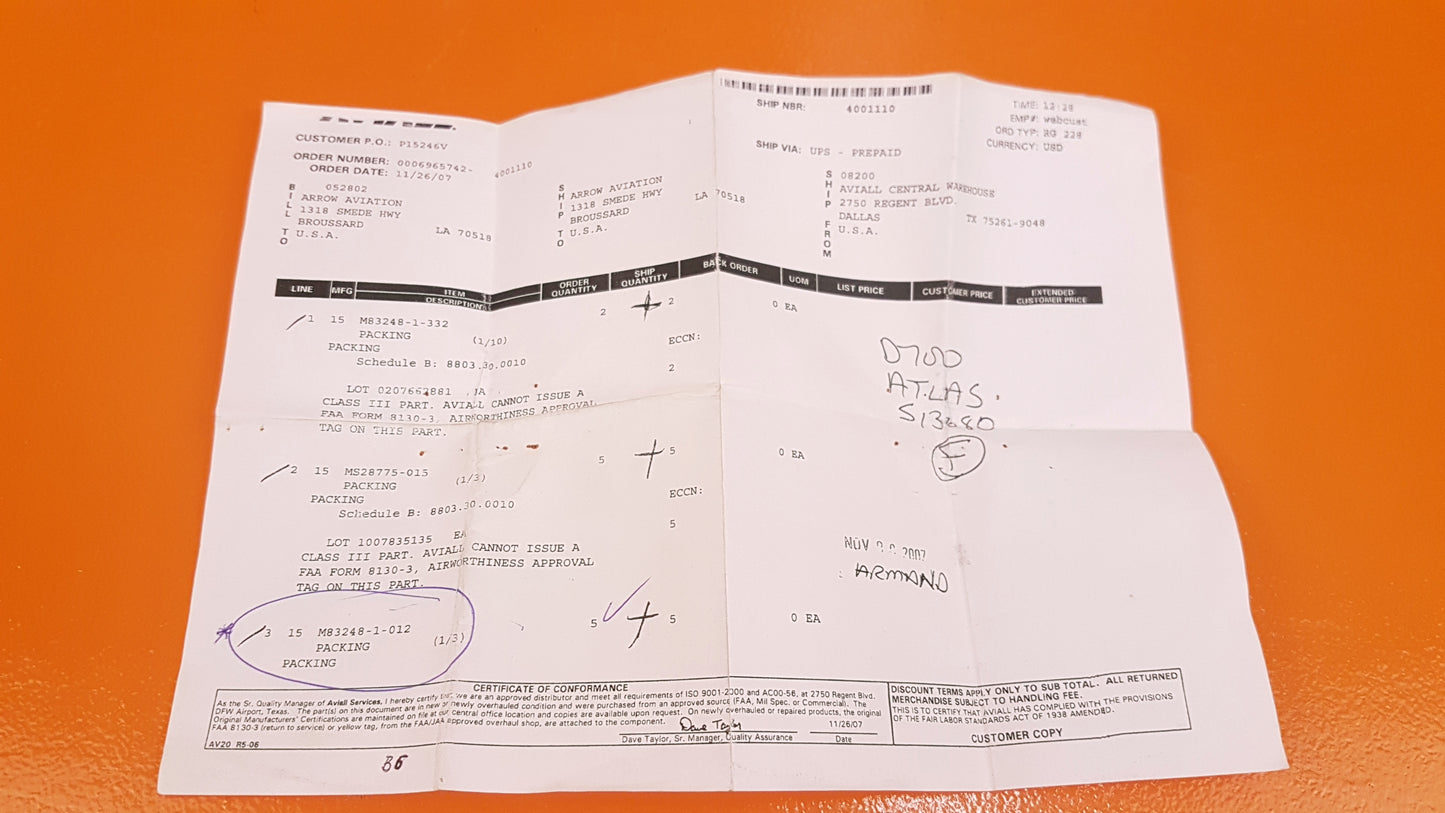 CUSTOMER P.O.: P15246V
ORDER NUMBER: 0006965742- 4001110
ORDER DATE: 11/26/07
SHIP NBR: 4001110
SHIP VIA: UPS - PREPAID
TIME: 12:28
EMP#: webcust
ORD TYP: RG 228
CURRENCY: USD
BILL TO
052802
ARROW AVIATION
1318 SMEDE HWY
BROUSSARD LA 70518
U.S.A.
SHIP TO
ARROW AVIATION
1318 SMEDE HWY
BROUSSARD LA 70518
U.S.A.
SHIP FROM
08200
AVIALL CENTRAL WAREHOUSE
2750 REGENT BLVD.
DALLAS TX 75261-9048
U.S.A.
LINE MFG ITEM DESCRIPTION ORDER QUANTITY SHIP QUANTITY BACK ORDER UOM LIST PRICE CUSTOMER PRICE EXTENDED CUSTOMER PRICE
1 15 M83248-1-332 2 2 0 EA
PACKING (1/10)
PACKING ECCN:
Schedule B: 8803.30.0010
LOT 0207662881 JA 2
CLASS III PART. AVIALL CANNOT ISSUE A
FAA FORM 8130-3, AIRWORTHINESS APPROVAL
TAG ON THIS PART.
D700
ATLAS.
F
2 15 MS28775-015 5 5 0 EA
PACKING (1/3)
PACKING ECCN:
Schedule B: 8803.30.0010
LOT 1007835135 EA 5
CLASS III PART. AVIALL CANNOT ISSUE A
FAA FORM 8130-3, AIRWORTHINESS APPROVAL
TAG ON THIS PART.
NOV 2007
ARMAND
3 15 M83248-1-012 5 5 0 EA
PACKING (1/3)
PACKING
CERTIFICATE OF CONFORMANCE
As the Sr. Quality Manager of Aviall Services, I hereby certify that we are an approved distributor and meet all requirements of ISO 9001-2000 and AC00-56, at 2750 Regent Blvd.
DFW Airport, Texas. The part(s) on this document are in new or newly overhauled condition and were purchased from an approved source (FAA, Mil Spec. or Commercial). The
Original Manufacturers' Certifications are maintained on file at our central office location and copies are available upon request. On newly overhauled or repaired products, the original
FAA 8130-3 (return to service) or yellow tag, from the FAA/JAA approved overhaul shop, are attached to the component.
Dave Taylor 11/26/07
Dave Taylor, Sr. Manager, Quality Assurance Date
AV20 R5-06
DISCOUNT TERMS APPLY ONLY TO SUB TOTAL. ALL RETURNED
MERCHANDISE SUBJECT TO HANDLING FEE.
THIS IS TO CERTIFY THAT AVIALL HAS COMPLIED WITH THE PROVISIONS
OF THE FAIR LABOR STANDARDS ACT OF 1938 AMENDED.
CUSTOMER COPY